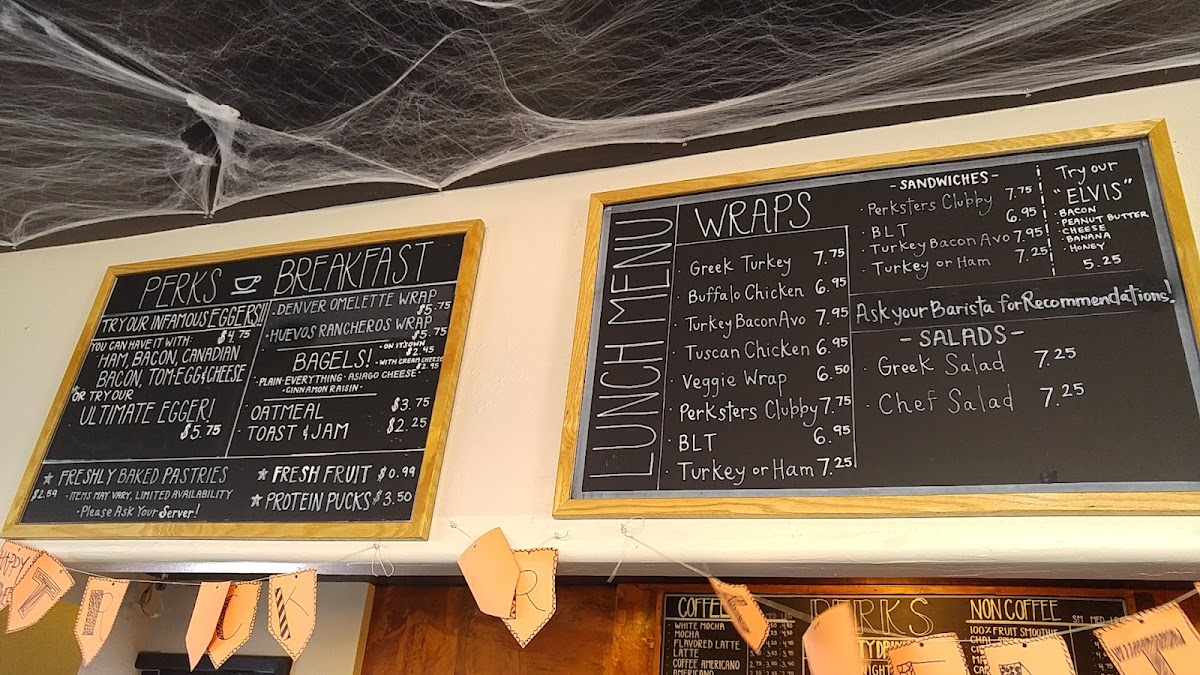 PERKS BREAKFAST
TRY OUR INFAMOUS EGGERS!!
$4.75
YOU CAN HAVE IT WITH:
HAM, BACON, CANADIAN
BACON, TOM-EGG & CHEESE
OR TRY OUR
ULTIMATE EGGER!
$5.75
· DENVER OMELETTE WRAP
$5.75
· HUEVOS RANCHEROS WRAP
$5.75
BAGELS!
· ON IT'S OWN
$2.45
· WITH CREAM CHEESE
$2.95
· PLAIN · EVERYTHING · ASIAGO CHEESE ·
· CINNAMON RAISIN ·
· OATMEAL $3.75
TOAST & JAM $2.25
FRESHLY BAKED PASTRIES
$2.59 · ITEMS MAY VARY, LIMITED AVAILABILITY
· Please Ask Your Server!
FRESH FRUIT $0.99
PROTEIN PUCKS $3.50
LUNCH MENU
WRAPS
· Greek Turkey 7.75
· Buffalo Chicken 6.95
· Turkey Bacon Avo 7.95
· Tuscan Chicken 6.95
· Veggie Wrap 6.50
· Perksters Clubby 7.75
· BLT 6.95
· Turkey or Ham 7.25
- SANDWICHES -
· Perksters Clubby 7.75
· BLT 6.95
· Turkey Bacon Avo 7.95
· Turkey or Ham 7.25
Try our
"ELVIS"
· BACON
· PEANUT BUTTER
· CHEESE
· BANANA
· HONEY
5.25
Ask your Barista for Recommendations!
- SALADS -
· Greek Salad 7.25
· Chef Salad 7.25
COFFEE
WHITE MOCHA
MOCHA
FLAVORED LATTE
LATTE
COFFEE AMERICANO
AMERICANO
PERKS
NON COFFEE
SM MED
100% FRUIT SMOOTHIE
HAPPY
T
R
C
K
R
T